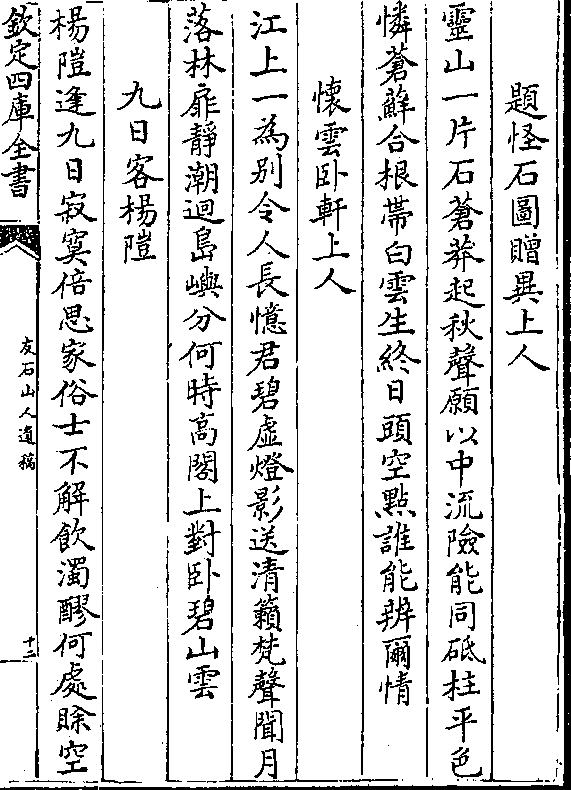 題怪石圖贈異上人
靈山一片石蒼莽起秋聲願以中流險能同砥柱平色
憐蒼蘚合根帶白雲生終日頭空點誰能辨爾情
懷雲卧軒上人
江上一為別令人長憶君碧虛燈影送清籟梵聲聞月
落林扉靜潮迴島嶼分何時高閣上對卧碧山雲
九日客楊隑
楊隑逢九日寂寞倍思家俗士不解飲濁醪何處賒空
欽定四庫全書
友石山人遺稿
十二